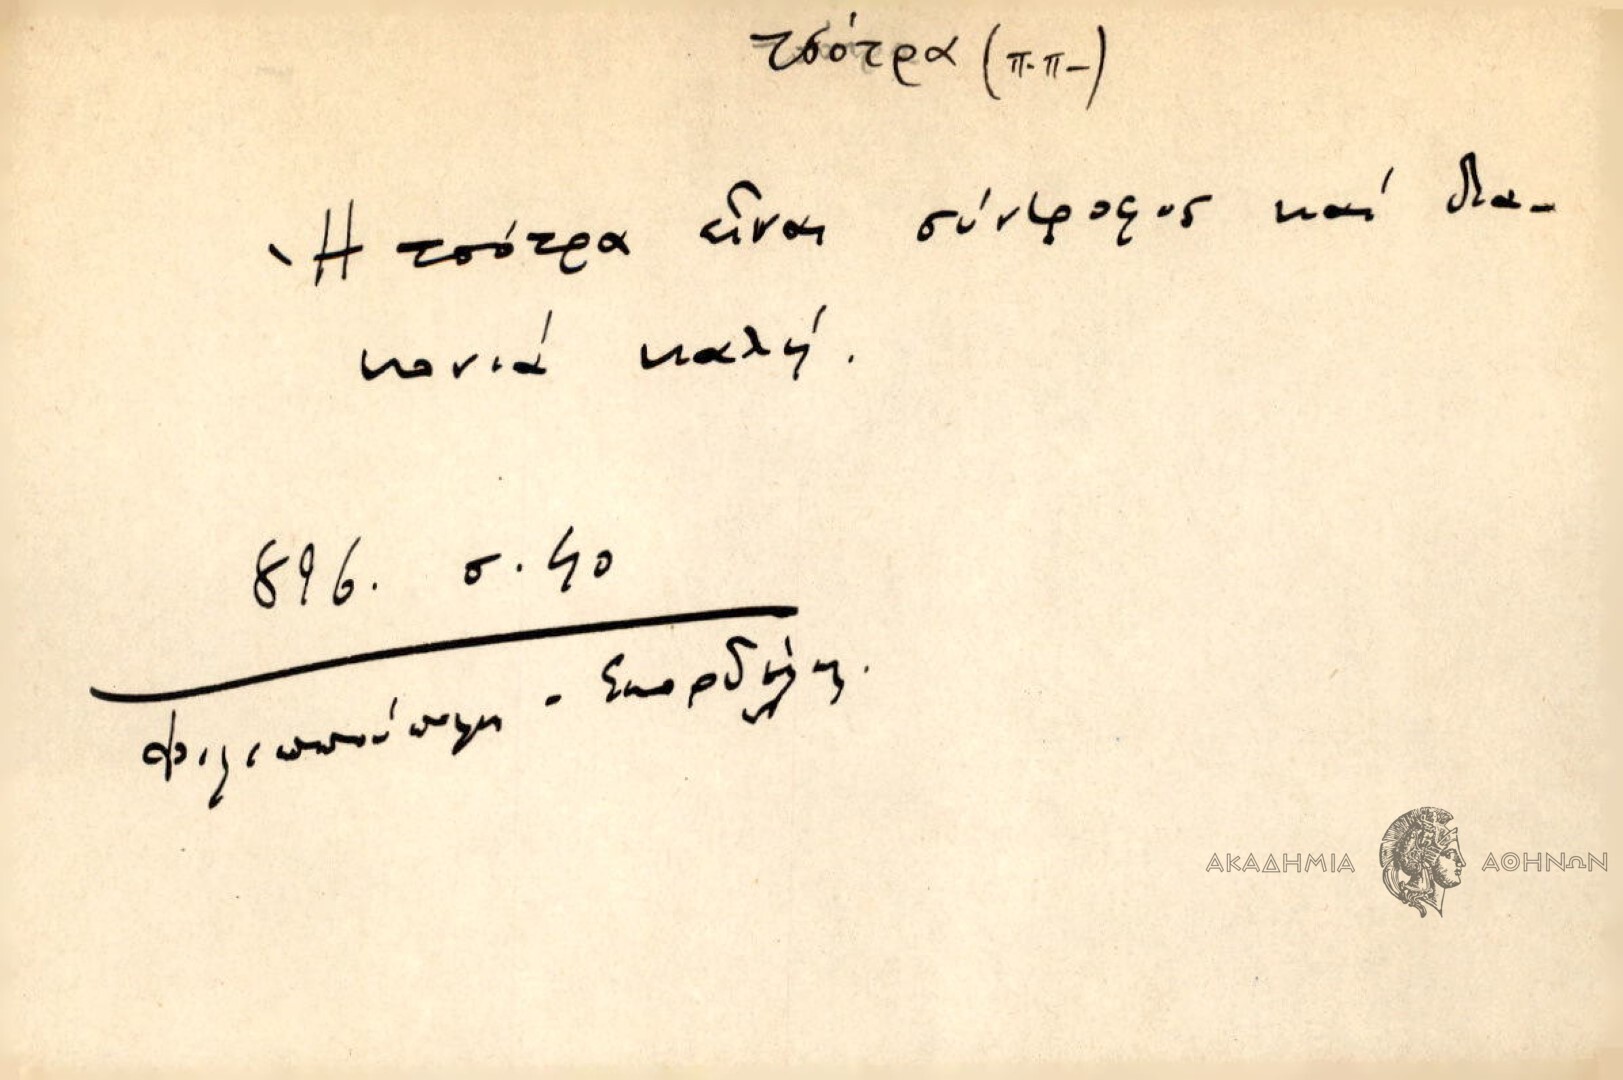 τσότρα (π.π-)
Ἡ τσότρα εἶναι σύντροφος καί δια-
κονιά καλή.
896. σ. 40
Φιλιππούπολη - Σκορδέλη.
ΑΚΑΔΗΜΙΑ ΑΘΗΝΩΝ